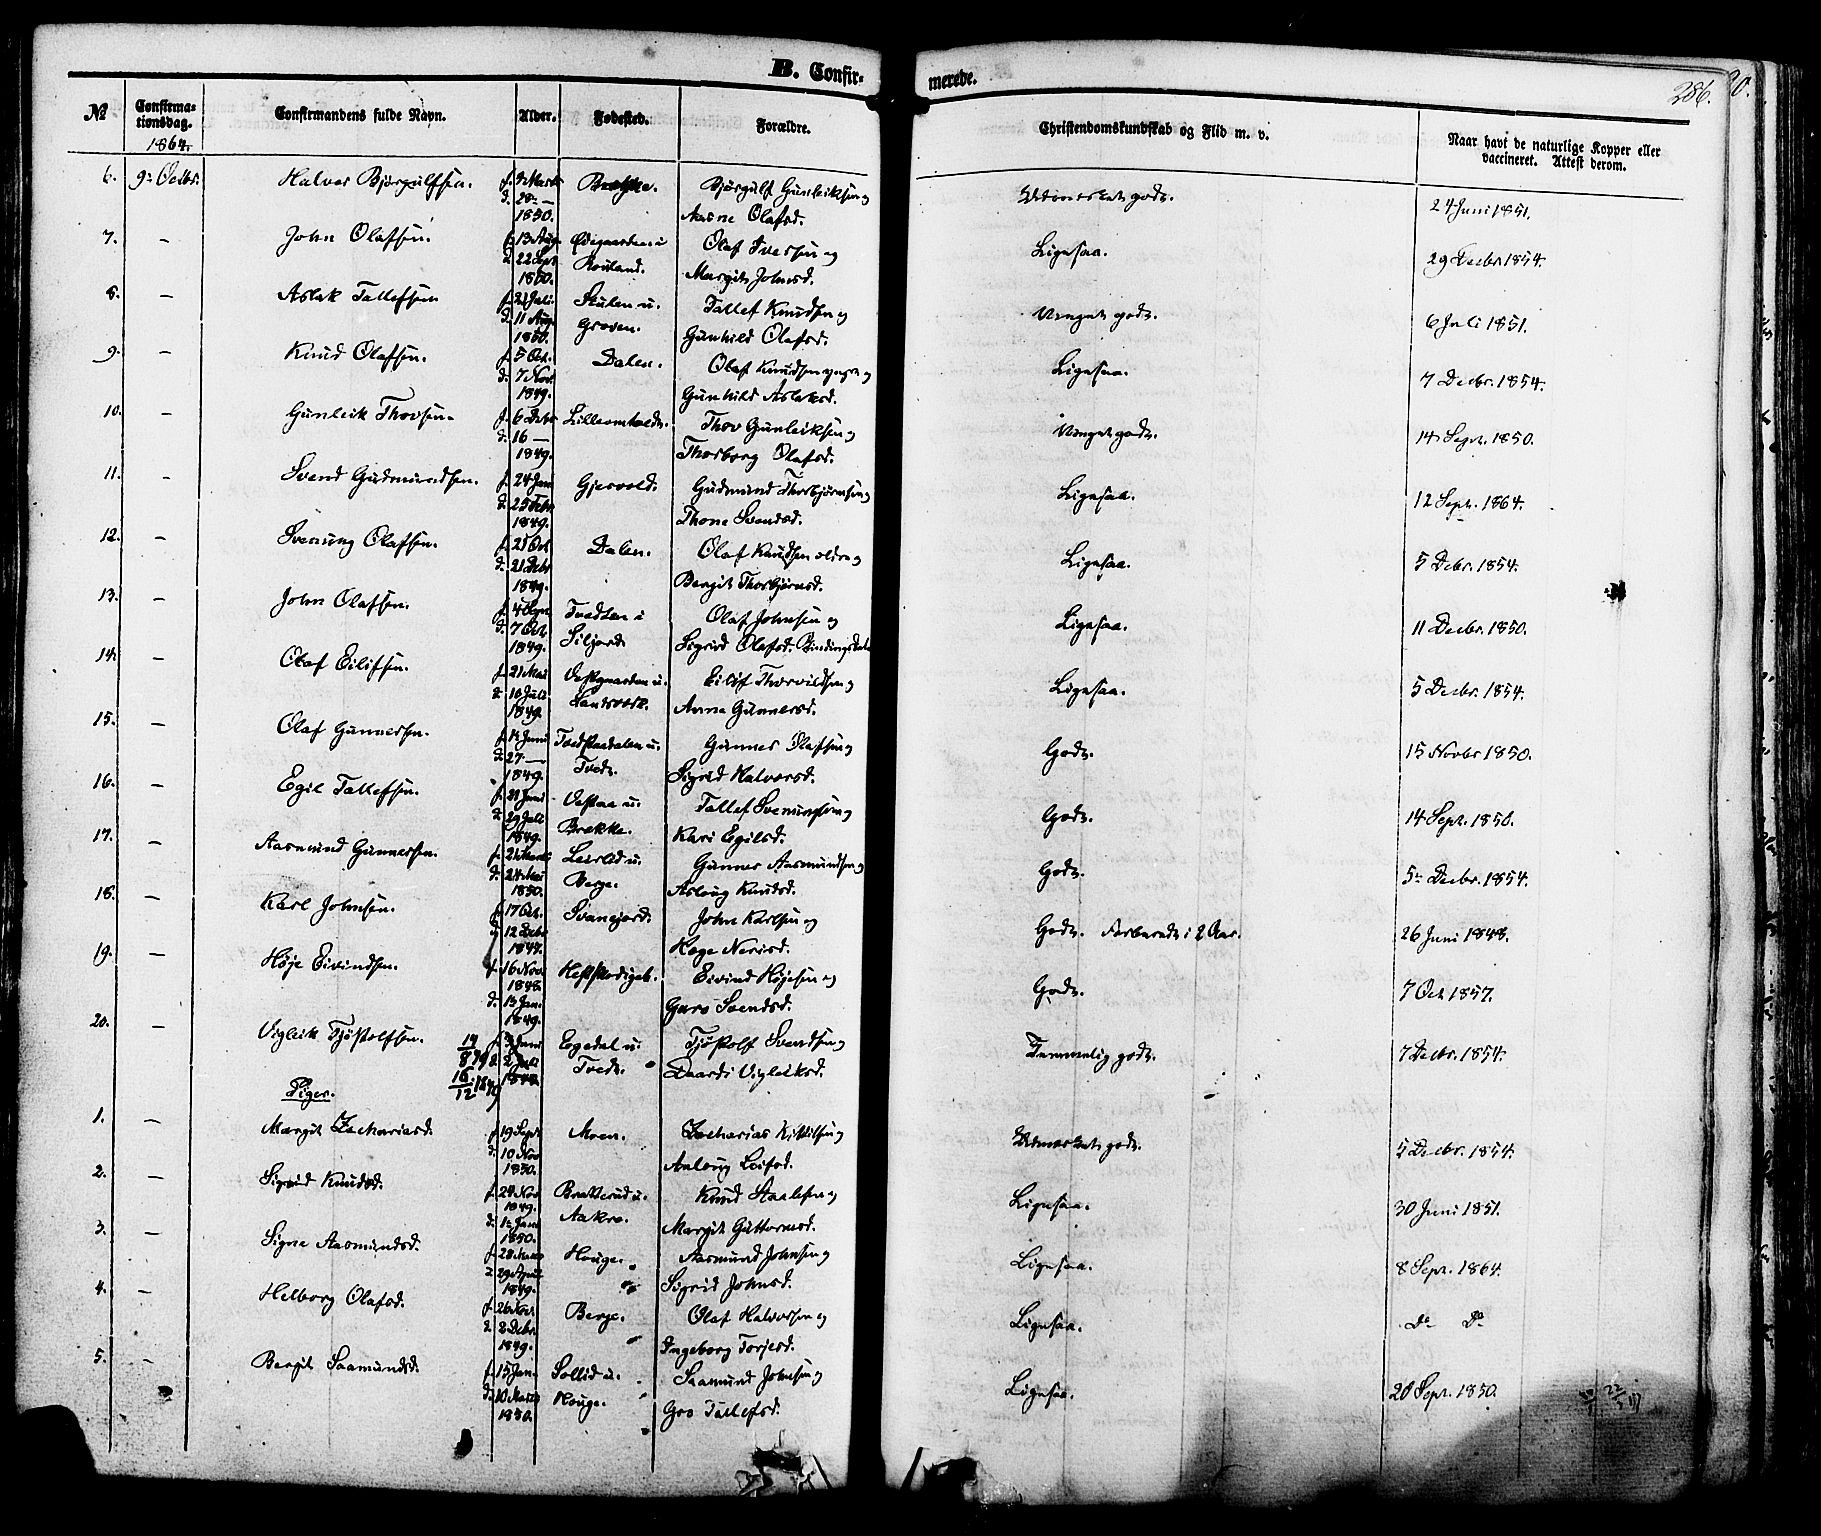 B. Confir-
merede.
286.
№
Confirma-
tionsdag.
1864.
Confirmandens fulde Navn.
Alder.
Fødested.
Forældre.
Christendomskundskab og Flid m. v.
Naar havt de naturlige Kopper eller
vaccineret. Attest derom.
6. 9. Octbr. Halvor Bjørgulfsen. f. 9 Marts Brekke. Bjørgulf Gunleiksen og Udmerket godt. 24 Juni 1851.
d. 28 — Aasne Olafsd.
1850.
7. — John Olafsen. f. 13 Aug. Ødegaarden u. Olaf Iversen og Ligesaa. 29 Decbr 1854.
d. 22 Sept Rouland. Margit Johnsd.
1850.
8. — Aslak Tallefsen f. 21 Juli Skulen u. Tallef Knudsen og Meget godt. 6 Juli 1851.
d. 11 Aug. Groven. Gunhild Olafsd.
1850.
9. — Knud Olafsen. f. 5 Oct. Dalen. Olaf Knudsen yngre og Ligesaa. 7 Decbr. 1854.
d. 7 Nov. Gunhild Aslaksd.
1849.
10. — Gunleik Thovsen. f. 6 Decbr Thov Gunleiksen og Meget godt. 14 Sept. 1850.
d. 16 — Thorborg Olafsd.
1849.
11. — Svend Gudmundsen. f. 24 Jan Gjersvold. Gudmund Thorbjørnsen og Ligesaa. 12 Sept. 1864.
d. 25 Febr Thone Svendsd.
1849.
12. — Svenung Olafsen. f. 25 Oct Dalen. Olaf Knudsen ældre og Ligesaa. 5 Decbr. 1854.
d. 21 Decbr Bergit Thorbjørnsd.
1849.
13. — John Olafsen. f. 4 Sept Tvedten i Olaf Johnsen og Ligesaa. 11 Decbr. 1850.
d. 7 Oct. Siljord. Sigrid Olafsd. Bindingsdalen
1849.
14. — Olaf Eilifsen. f. 21 Mai Vestgaarden u. Eilif Thorvildsen og Ligesaa. 5 Decbr. 1854.
d. 10 Juli Landsverk. Anne Gunnersd.
1849.
15. — Olaf Gunnersen. f. 14 Juni Tvedstadalen u. Gunner Olafsen og Godt. 15 Novbr 1850.
d. 27 — Tvedt. Sigrid Halvorsd.
1849.
16. — Egil Tallefsen. f. 21 Juni Vestaa u. Tallef Svenungsen og Godt. 14 Sept. 1850.
d. 29 Juli Brekke. Kari Egilsd.
1849.
17. — Aasmund Gunnersen. f. 21 Marts Leirlid u. Gunner Aasmundsen og Godt. 5 Decbr. 1854.
d. 24 Mai Berge. Aslaug Knudsd.
1850.
18. — Karl Johnsen. f. 17 Oct. Svanejord. John Karlsen og Godt. Forberedt i 2 Aar. 26 Juni 1848.
d. 12 Decbr Hæge Nerisd.
1847.
19. — Høje Eivindsen. f. 16 Nov. Eivind Højesen og Godt. 7 Oct 1857.
1848.
d. 13 Jan. Guro Svendsd.
1849.
20. — Vigleik Tjøstolfsen. f. 3 Juni Eegedal u. Tjøstolf Svendsen og Temmelig godt. 7 Decbr. 1854.
d. 2 Juli Tvedt. Daardi Vigleiksd.
1848.
Piger.
1. — Margit Zachariasd. f. 19 Sept Moen. Zacharias Kittilsen og Udmerket godt. 5 Decbr. 1854.
d. 10 Nov Aslaug Leifsd.
1850.
2. — Sigrid Knudsd. f. 24 Nov Bratterud u. Knud Staalesen og Ligesaa. 30 Juni 1851.
1849.
d. 1 Jan Aakre. Margit Guttormsd.
1850.
3. — Signe Aasmundsd. f. 28 Marts Houge. Aasmund Johnsen og Ligesaa. 8 Sept. 1864.
d. 29 April Sigrid Johnsd.
1849.
4. — Helborg Olafsd. f. 26 Nov. Berge. Olaf Halvorsen og Ligesaa. Do Do
d. 2 Decbr. Ingeborg Torjesd.
1849.
5. — Bergit Saamundsd. f. 15 Jan. Sollid u. Saamund Johnsen og Ligesaa. 20 Sept. 1850.
d. 10 Marts Houge. Gro Tallefsd.
1850.